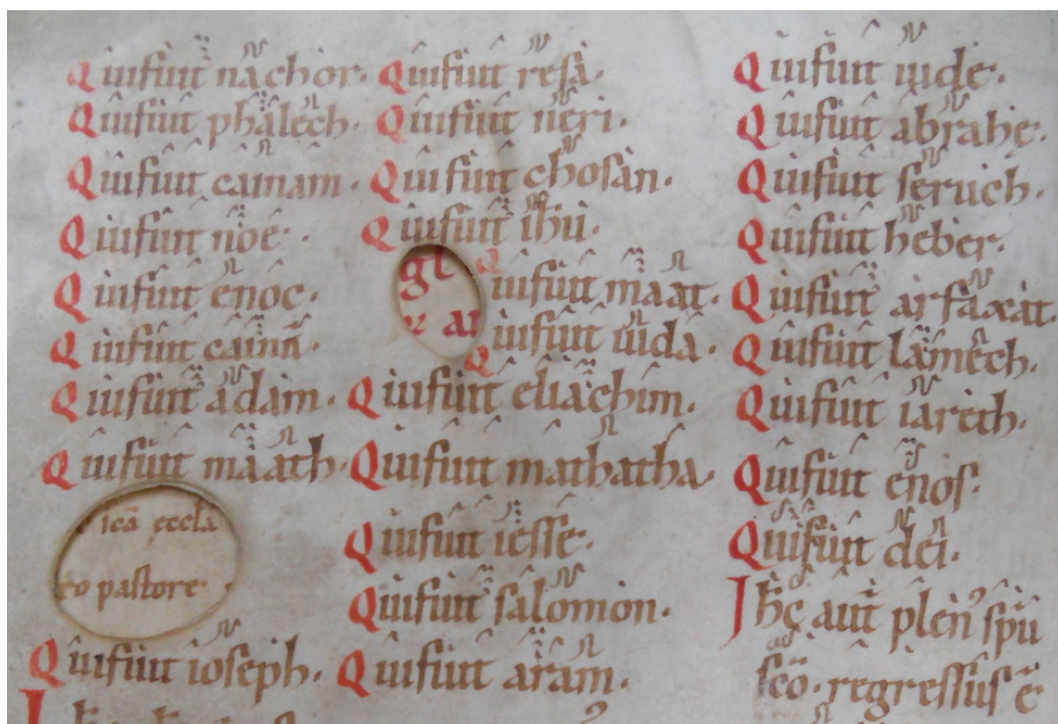 Qui fuit nachor.
Qui fuit phalech.
Qui fuit cainam.
Qui fuit noe.
Qui fuit enoc.
Qui fuit cainan.
Qui fuit adam.
Qui fuit maath.
ica eccła
to pastore
Qui fuit ioseph.
Qui fuit resa.
Qui fuit neri.
Qui fuit chosan.
Qui fuit ihu.
gl
Qui fuit maat.
Qui fuit iuda.
Qui fuit eliachim.
Qui fuit mathatha.
Qui fuit iesse.
Qui fuit salomon.
Qui fuit aram.
Qui fuit iude.
Qui fuit abrahę.
Qui fuit seruch.
Qui fuit heber.
Qui fuit arfaxat.
Qui fuit lamech.
Qui fuit iareth.
Qui fuit enos.
Qui fuit dei.
Ihc aut plen spu
sco. regressus e